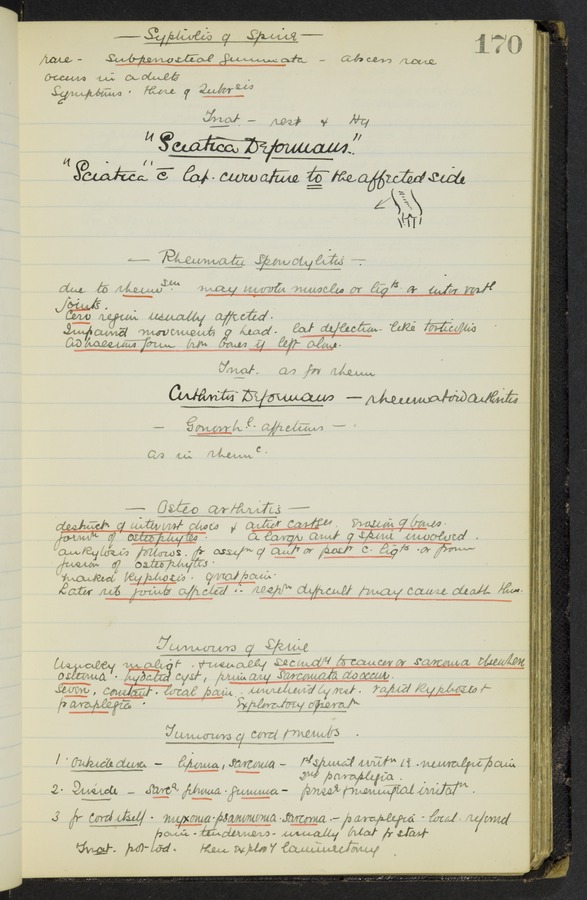 170
— Syphilis of Spine —
rare - Subperiosteal Gummata - abscess rare
occurs in adults
Symptoms. those of Tubercis
Treat. - rest & Hg
"Sciatica Deformans."
"Sciatica" c̄ lat. curvature to the affected side
— Rheumatic Spondylitis —
due to rheum^sm may involve muscles or lig^ts or inter vert^l
joints.
Cerv region usually affected.
Impaired movements of head. lat deflection like torticollis
Adhaesions form btn bones if left alone.
Treat. as for rheum
Arthritis Deformans — rheumatoid arthritis
— Gonorrh^l. affections —
as in rheum^c.
— Osteo arthritis —
destruct^n of intervert discs & artic cartges. Erosion of bones.
form^n of osteophytes. A large amt of spine involved.
ankylosis follows. fr ossif^n of ant or post c. lig^ts. or from
fusion of osteophytes.
marked Kyphosis. great pain.
Later rib joints affected ∴ resp^n difficult & may cause death thus.
Tumours of Spine
Usually malig^t. & usually second^y to cancer or sarcoma elsewhere
osteoma. hydatid cyst, primary Sarcomata do occur.
Severe, constant. local pain. unrelieved by rest. rapid Kyphosis &
paraplegia. Exploratory operat^n
Tumours of cord & membs.
1. Outside dura - lipoma, sarcoma - 1st spinal irrit^n i.e. neuralgic pain
2nd paraplegia.
2. Inside - Sarc^a. fibroma. gumma - press^r & meningeal irritat^n.
3 fr cord itself. myxoma. psammoma. sarcoma. - paraplegia. local. referred
pain. tenderness. usually bilat fr start
Treat. pot iod. then explor^y laminectomy